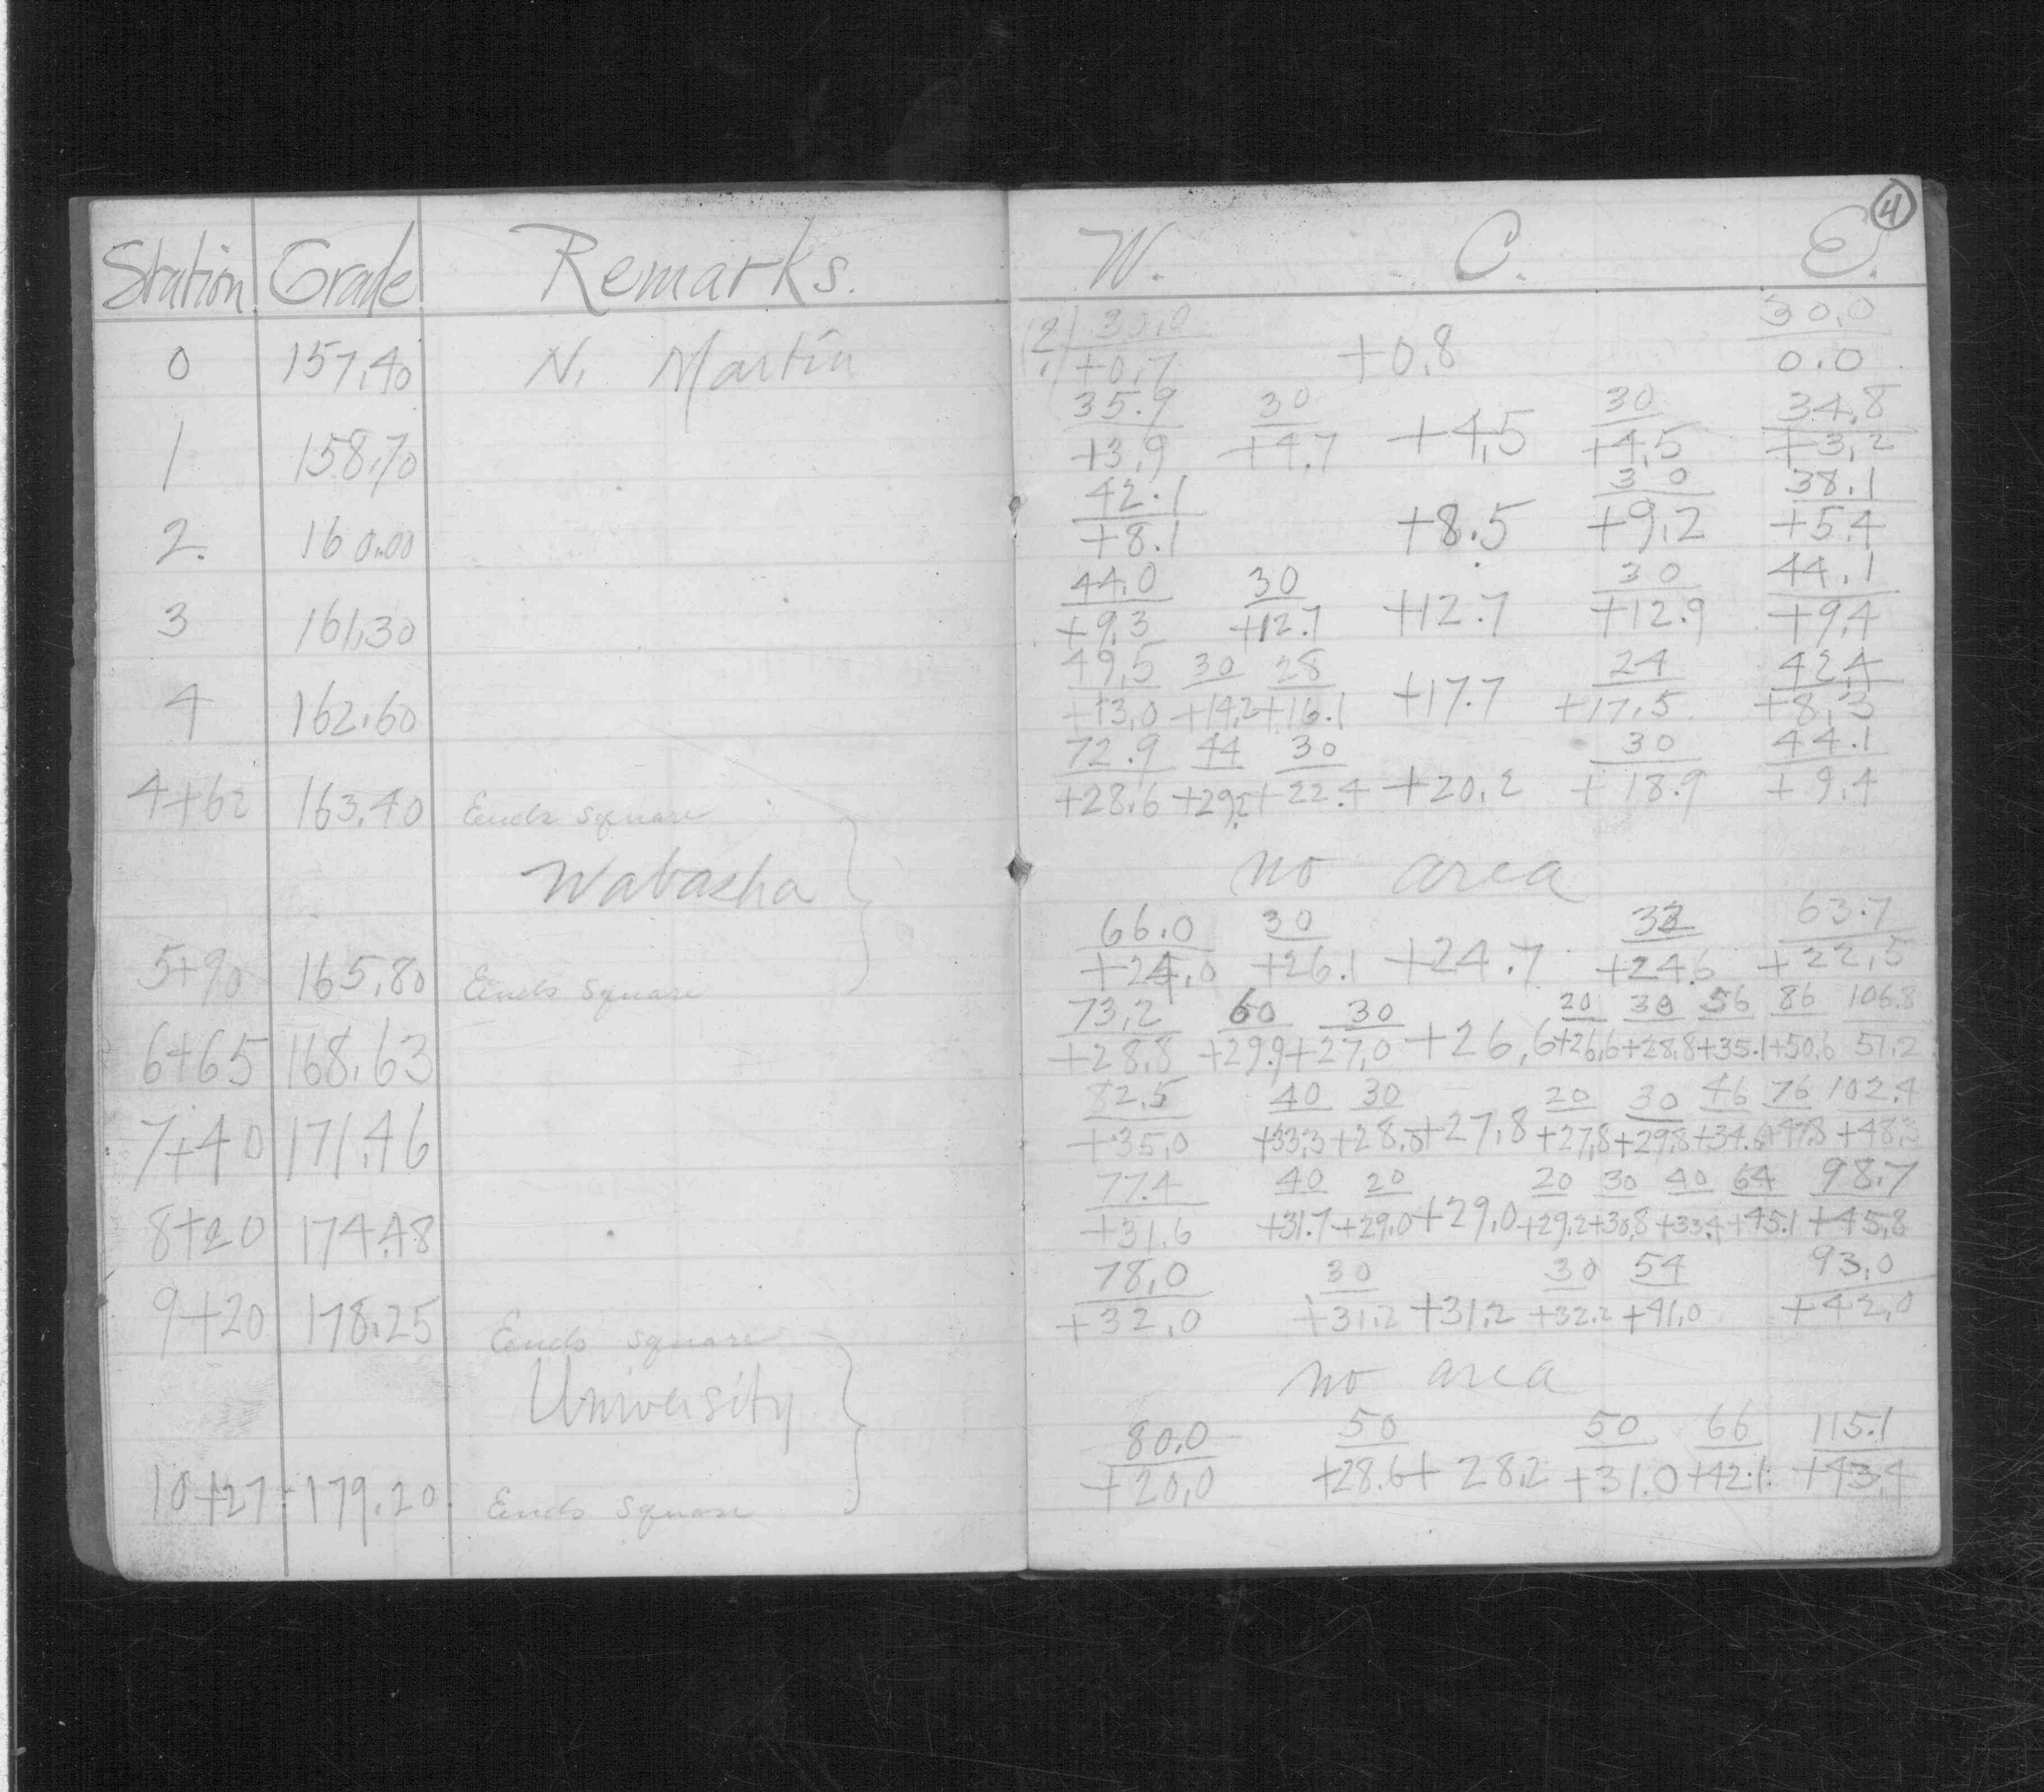 4
Station. Grade. Remarks. W. C. E.
30.0 30.0
0 157.40 N. Martin (2.) +0.7 +0.8 0.0
35.9 30 30 34.8
1 158.70 +3.9 +4.7 +4.5 +4.5 +3.2
42.1 30 38.1
2. 160.00 +8.1 +8.5 +9.2 +5.4
44.0 30 30 44.1
3 161.30 +9.3 +12.7 +12.7 +12.9 +9.4
49.5 30 28 24 42.4
4 162.60 +13.0 +14.2 +16.1 +17.7 +17.5 +8.3
72.9 44 30 30 44.1
4+62 163.40 Ends square +28.6 +29.2 +22.4 +20.2 +18.9 +9.4
Wabasha no area
66.0 30 63.7
5+90 165.80 Ends square +24.0 +26.1 +24.7 +24.6 +22.5
73.2 60 30 20 30 56 86 106.8
6+65 168.63 +28.8 +29.9 +27.0 +26.6 +26.6 +28.8 +35.1 +50.6 51.2
82.5 40 30 20 30 46 76 102.4
7+40 171.46 +35.0 +33.3 +28.5 +27.8 +27.8 +29.8 +34.6 +47.8 +48.3
77.4 40 20 20 30 40 64 98.7
8+20 174.48 +31.6 +31.7 +29.0 +29.0 +29.2 +30.8 +33.4 +45.1 +45.8
78.0 30 30 54 93.0
9+20 178.25 Ends square +32.0 +31.2 +31.2 +32.2 +41.0 +42.0
University no area
80.0 50 50 66 115.1
10+27 179.20 Ends square +20.0 +28.6 +28.2 +31.0 +42.1 +43.4